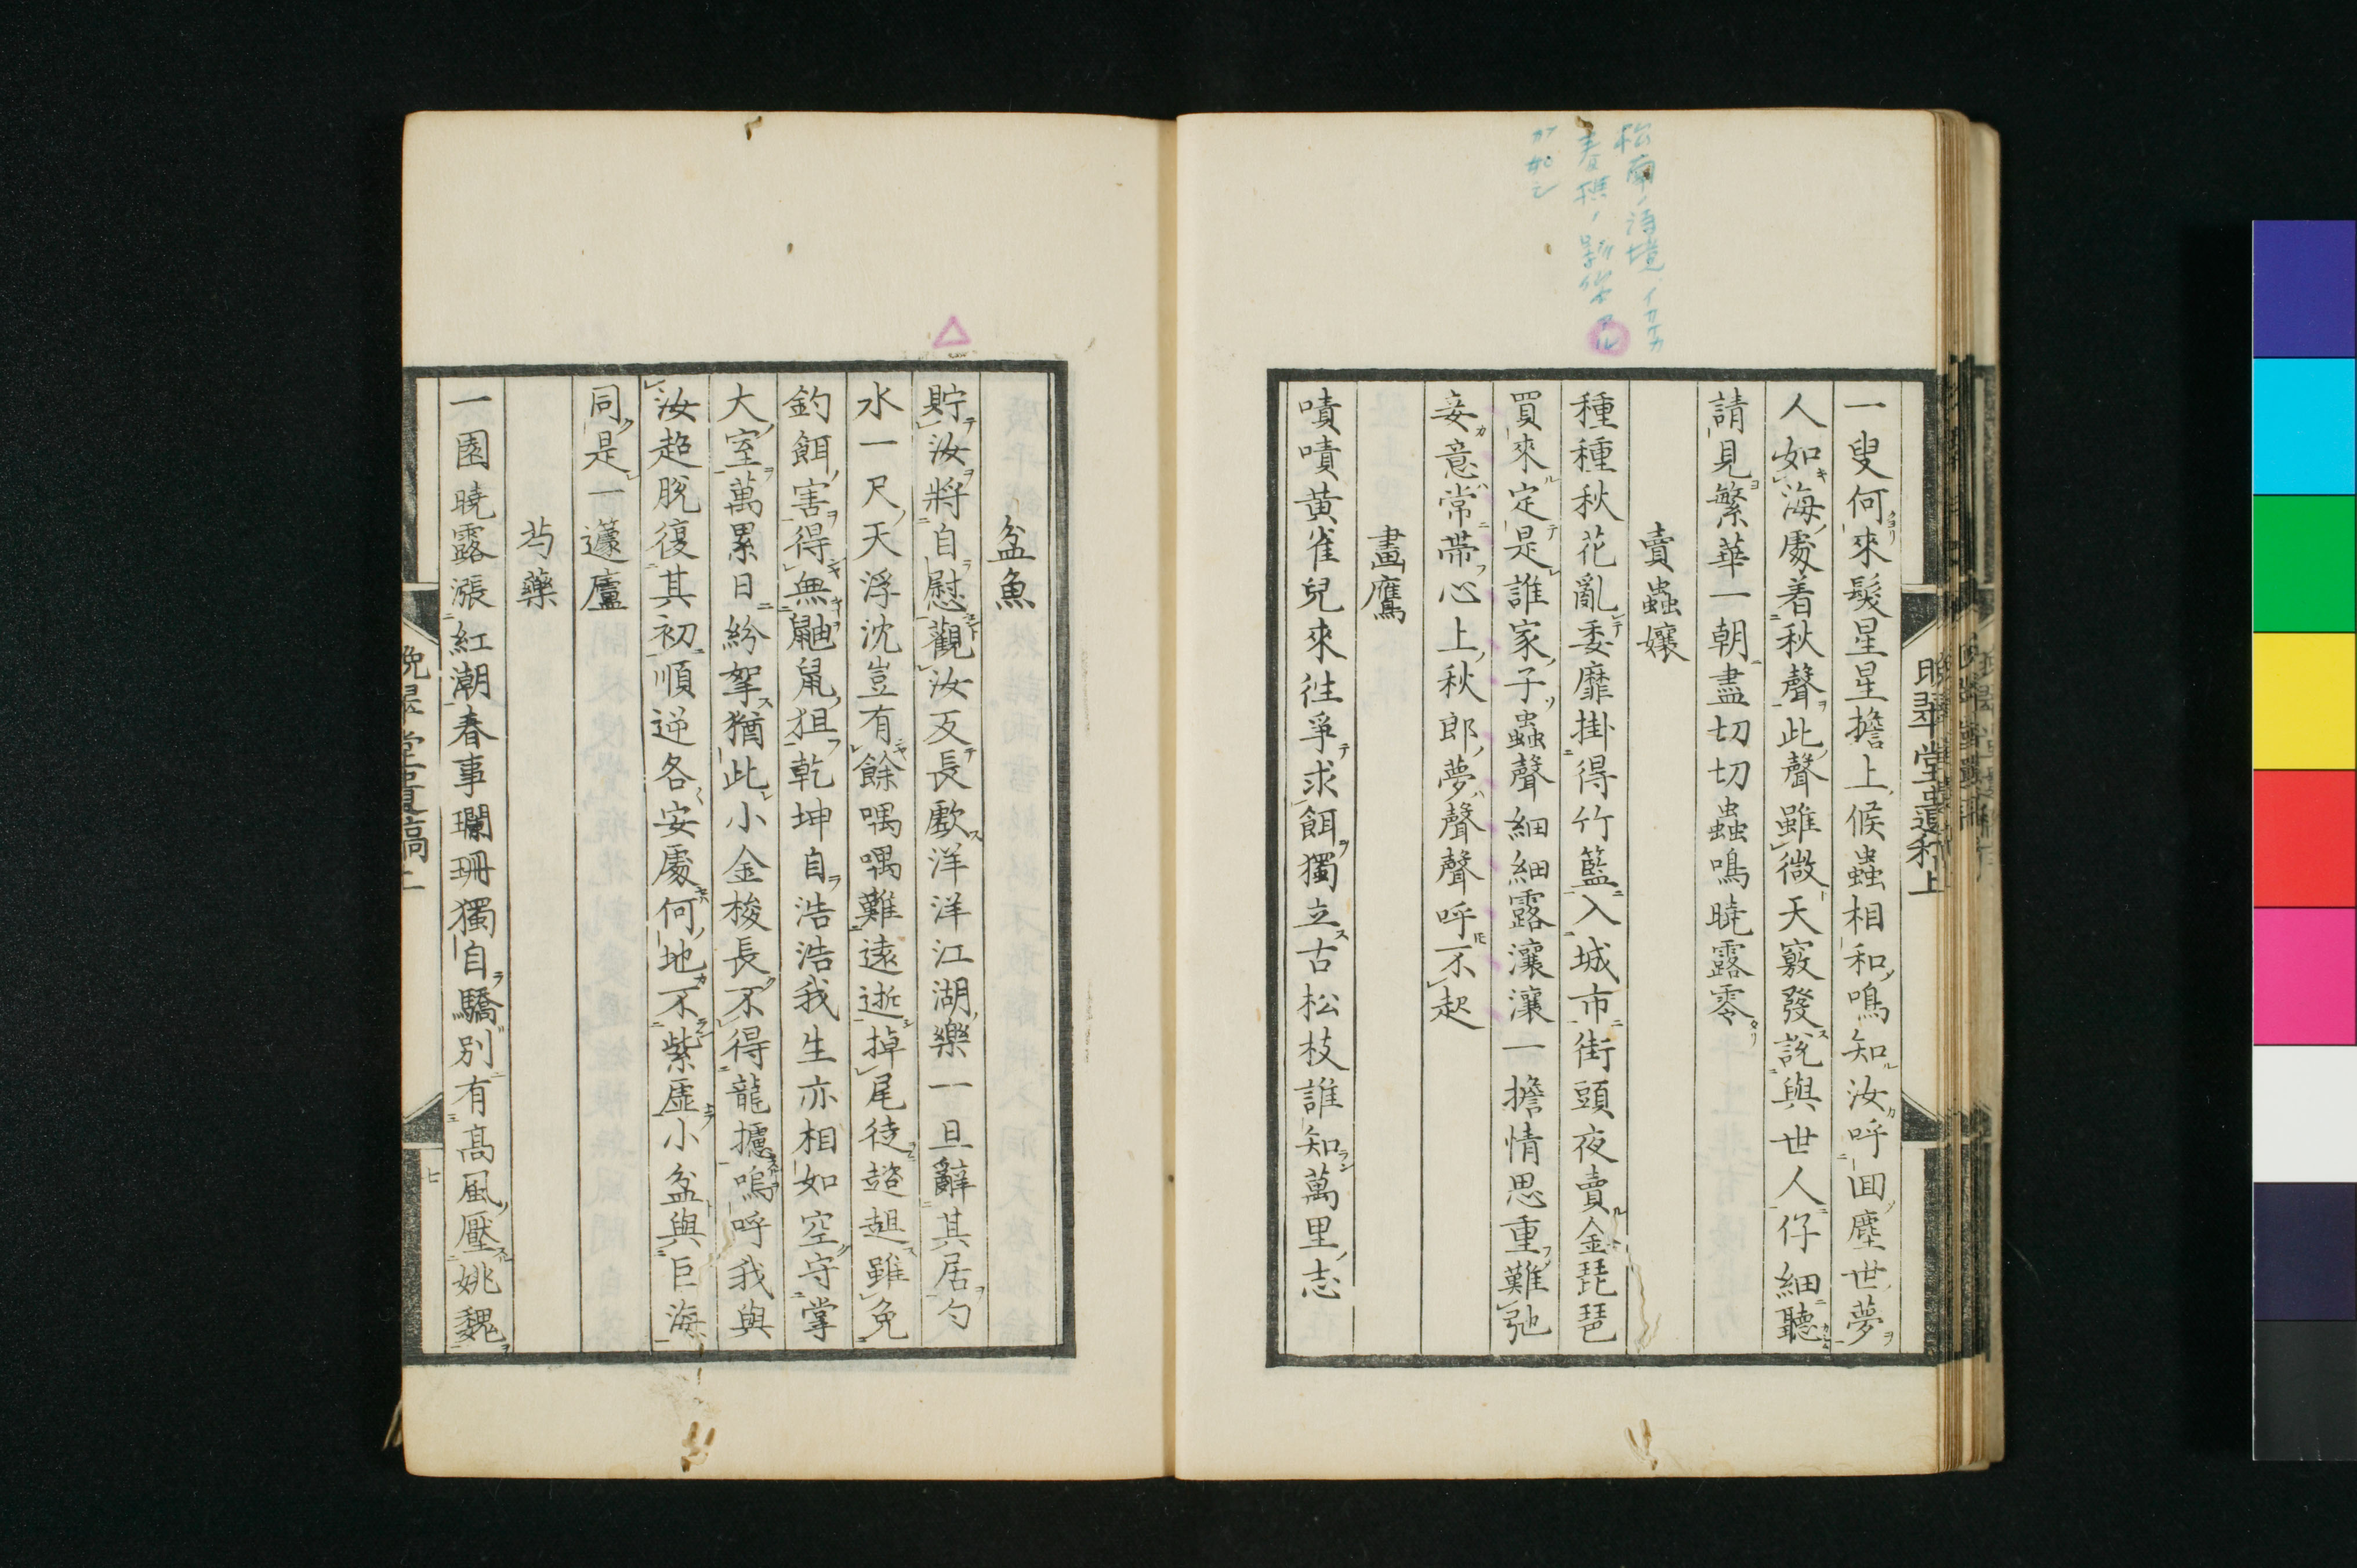 一叟何來髮星星擔上候蟲相和鳴知汝呼回塵世夢
人如海處着秋聲此聲雖微天竅發說與世人仔細聽
請見繁華一朝盡切切蟲鳴曉露零
賣蟲孃
種種秋花亂委靡掛得竹籃入城市街頭夜賣金琵琶
買來定是誰家子蟲聲細細露瀼瀼一擔情思重難弛
妾意常帶心上秋郎夢聲聲呼不起
畫鷹
嘖嘖黃雀兒來往爭求餌獨立古松枝誰知萬里志
盆魚
貯汝將自慰觀汝反長歔洋洋江湖樂一旦辭其居勺
水一尺天浮沈豈有餘喁喁難遠逝掉尾徒趦趄雖免
釣餌害得無鼬鼠狙乾坤自浩浩我生亦相如空守掌
大室萬累日紛挐猶此小金梭長不得龍攄嗚呼我與
汝超脫復其初順逆各安處何地不紫虛小盆與巨海
同是一蘧廬
芍藥
一園曉露漲紅潮春事瓓珊獨自驕別有高風壓姚魏
晚翠堂遺稿上
七